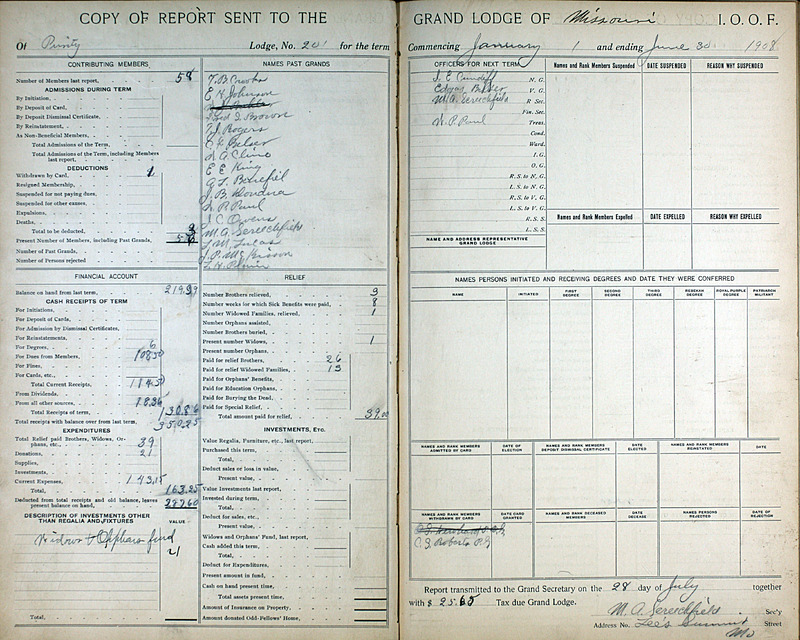 COPY OF REPORT SENT TO THE
Of Purity Lodge, No. 201 for the term
CONTRIBUTING MEMBERS
Number of Members last report, 58
ADMISSIONS DURING TERM
By Initiation,
By Deposit of Card,
By Deposit Dismissal Certificate,
By Reinstatement,
As Non-Beneficial Members,
Total Admissions of the Term,
Total Admissions of the Term, including Members
last report,
DEDUCTIONS
Withdrawn by Card, 1
Resigned Membership,
Suspended for not paying dues,
Suspended for other causes,
Expulsions,
Deaths,
Total to be deducted,
Present Number of Members, including Past Grands,
Number of Past Grands,
Number of Persons rejected
NAMES PAST GRANDS
T. B. Crooks
E K Johnson
Fred I Brown
T J Rogers
C H Belser
E E King
J C Owens
M A Sereechfield
J M Lucas
FINANCIAL ACCOUNT
Balance on hand from last term, 219.39
CASH RECEIPTS OF TERM
For Initiations,
For Deposit of Cards,
For Admission by Dismissal Certificates,
For Reinstatements,
For Degrees, 6
For Dues from Members, 108.50
For Fines,
For Cards, etc.,
Total Current Receipts, 114.50
From Dividends,
From all other sources, 18.36
Total Receipts of term, 130.86
Total receipts with balance over from last term, 350.25
EXPENDITURES
Total Relief paid Brothers, Widows, Or-
phans, etc., 39
Donations, 21
Supplies,
Investments,
Current Expenses, 143.15
Total, 163.25
Deducted from total receipts and old balance, leaves
present balance on hand,
DESCRIPTION OF INVESTMENTS OTHER
THAN REGALIA AND FIXTURES
VALUE
Widows & Orphans fund
21
Total,
RELIEF
Number Brothers relieved, 3
Number weeks for which Sick Benefits were paid, 8
Number Widowed Families, relieved, 1
Number Orphans assisted,
Number Brothers buried,
Present number Widows, 1
Present number Orphans,
Paid for relief Brothers, 26
Paid for relief Widowed Families, 13
Paid for Orphans' Benefits,
Paid for Education Orphans,
Paid for Burying the Dead,
Paid for Special Relief,
Total amount paid for relief, 39.00
INVESTMENTS, Etc.
Value Regalia, Furniture, etc., last report,
Purchased this term,
Total,
Deduct sales or loss in value,
Present value,
Value Investments last report,
Invested during term,
Total,
Deduct for sales, etc.,
Present value,
Widows and Orphans' Fund, last report,
Cash added this term,
Total,
Deduct for Expenditures,
Present amount in fund,
Cash on hand present time,
Total assets present time,
Amount of Insurance on Property,
Amount donated Odd-Fellows' Home,
GRAND LODGE OF Missouri I. O. O. F.
Commencing January 1 and ending June 30 1908
OFFICERS FOR NEXT TERM
J. E. Cundiff N. G.
Edgar Belser V. G.
M. A. Sereechfield R Sec.
Fin. Sec.
W. P. Paul Treas.
Cond.
Ward.
I. G.
O. G.
R. S. to N. G.
L. S. to N. G.
R. S. to V. G.
L. S. to V. G.
R. S. S.
L. S. S.
NAME AND ADDRESS REPRESENTATIVE
GRAND LODGE
Names and Rank Members Suspended
DATE SUSPENDED
REASON WHY SUSPENDED
Names and Rank Members Expelled
DATE EXPELLED
REASON WHY EXPELLED
NAMES PERSONS INITIATED AND RECEIVING DEGREES AND DATE THEY WERE CONFERRED
NAME
INITIATED
FIRST DEGREE
SECOND DEGREE
THIRD DEGREE
REBEKAH DEGREE
ROYAL PURPLE DEGREE
PATRIARCH MILITANT
NAMES AND RANK MEMBERS ADMITTED BY CARD
DATE OF ELECTION
NAMES AND RANK MEMBERS DEPOSIT DISMISSAL CERTIFICATE
DATE ELECTED
NAMES AND RANK MEMBERS REINSTATED
DATE
NAMES AND RANK MEMBERS WITHDRAWN BY CARD
DATE CARD GRANTED
NAMES AND RANK DECEASED MEMBERS
DATE DECEASE
NAMES PERSONS REJECTED
DATE OF REJECTION
C. S. Roberts P. G.
Report transmitted to the Grand Secretary on the 28 day of July together
with $ 25.65 Tax due Grand Lodge.
M. A. Sereechfield Sec'y
Address No. Lee's Summit Street
Mo